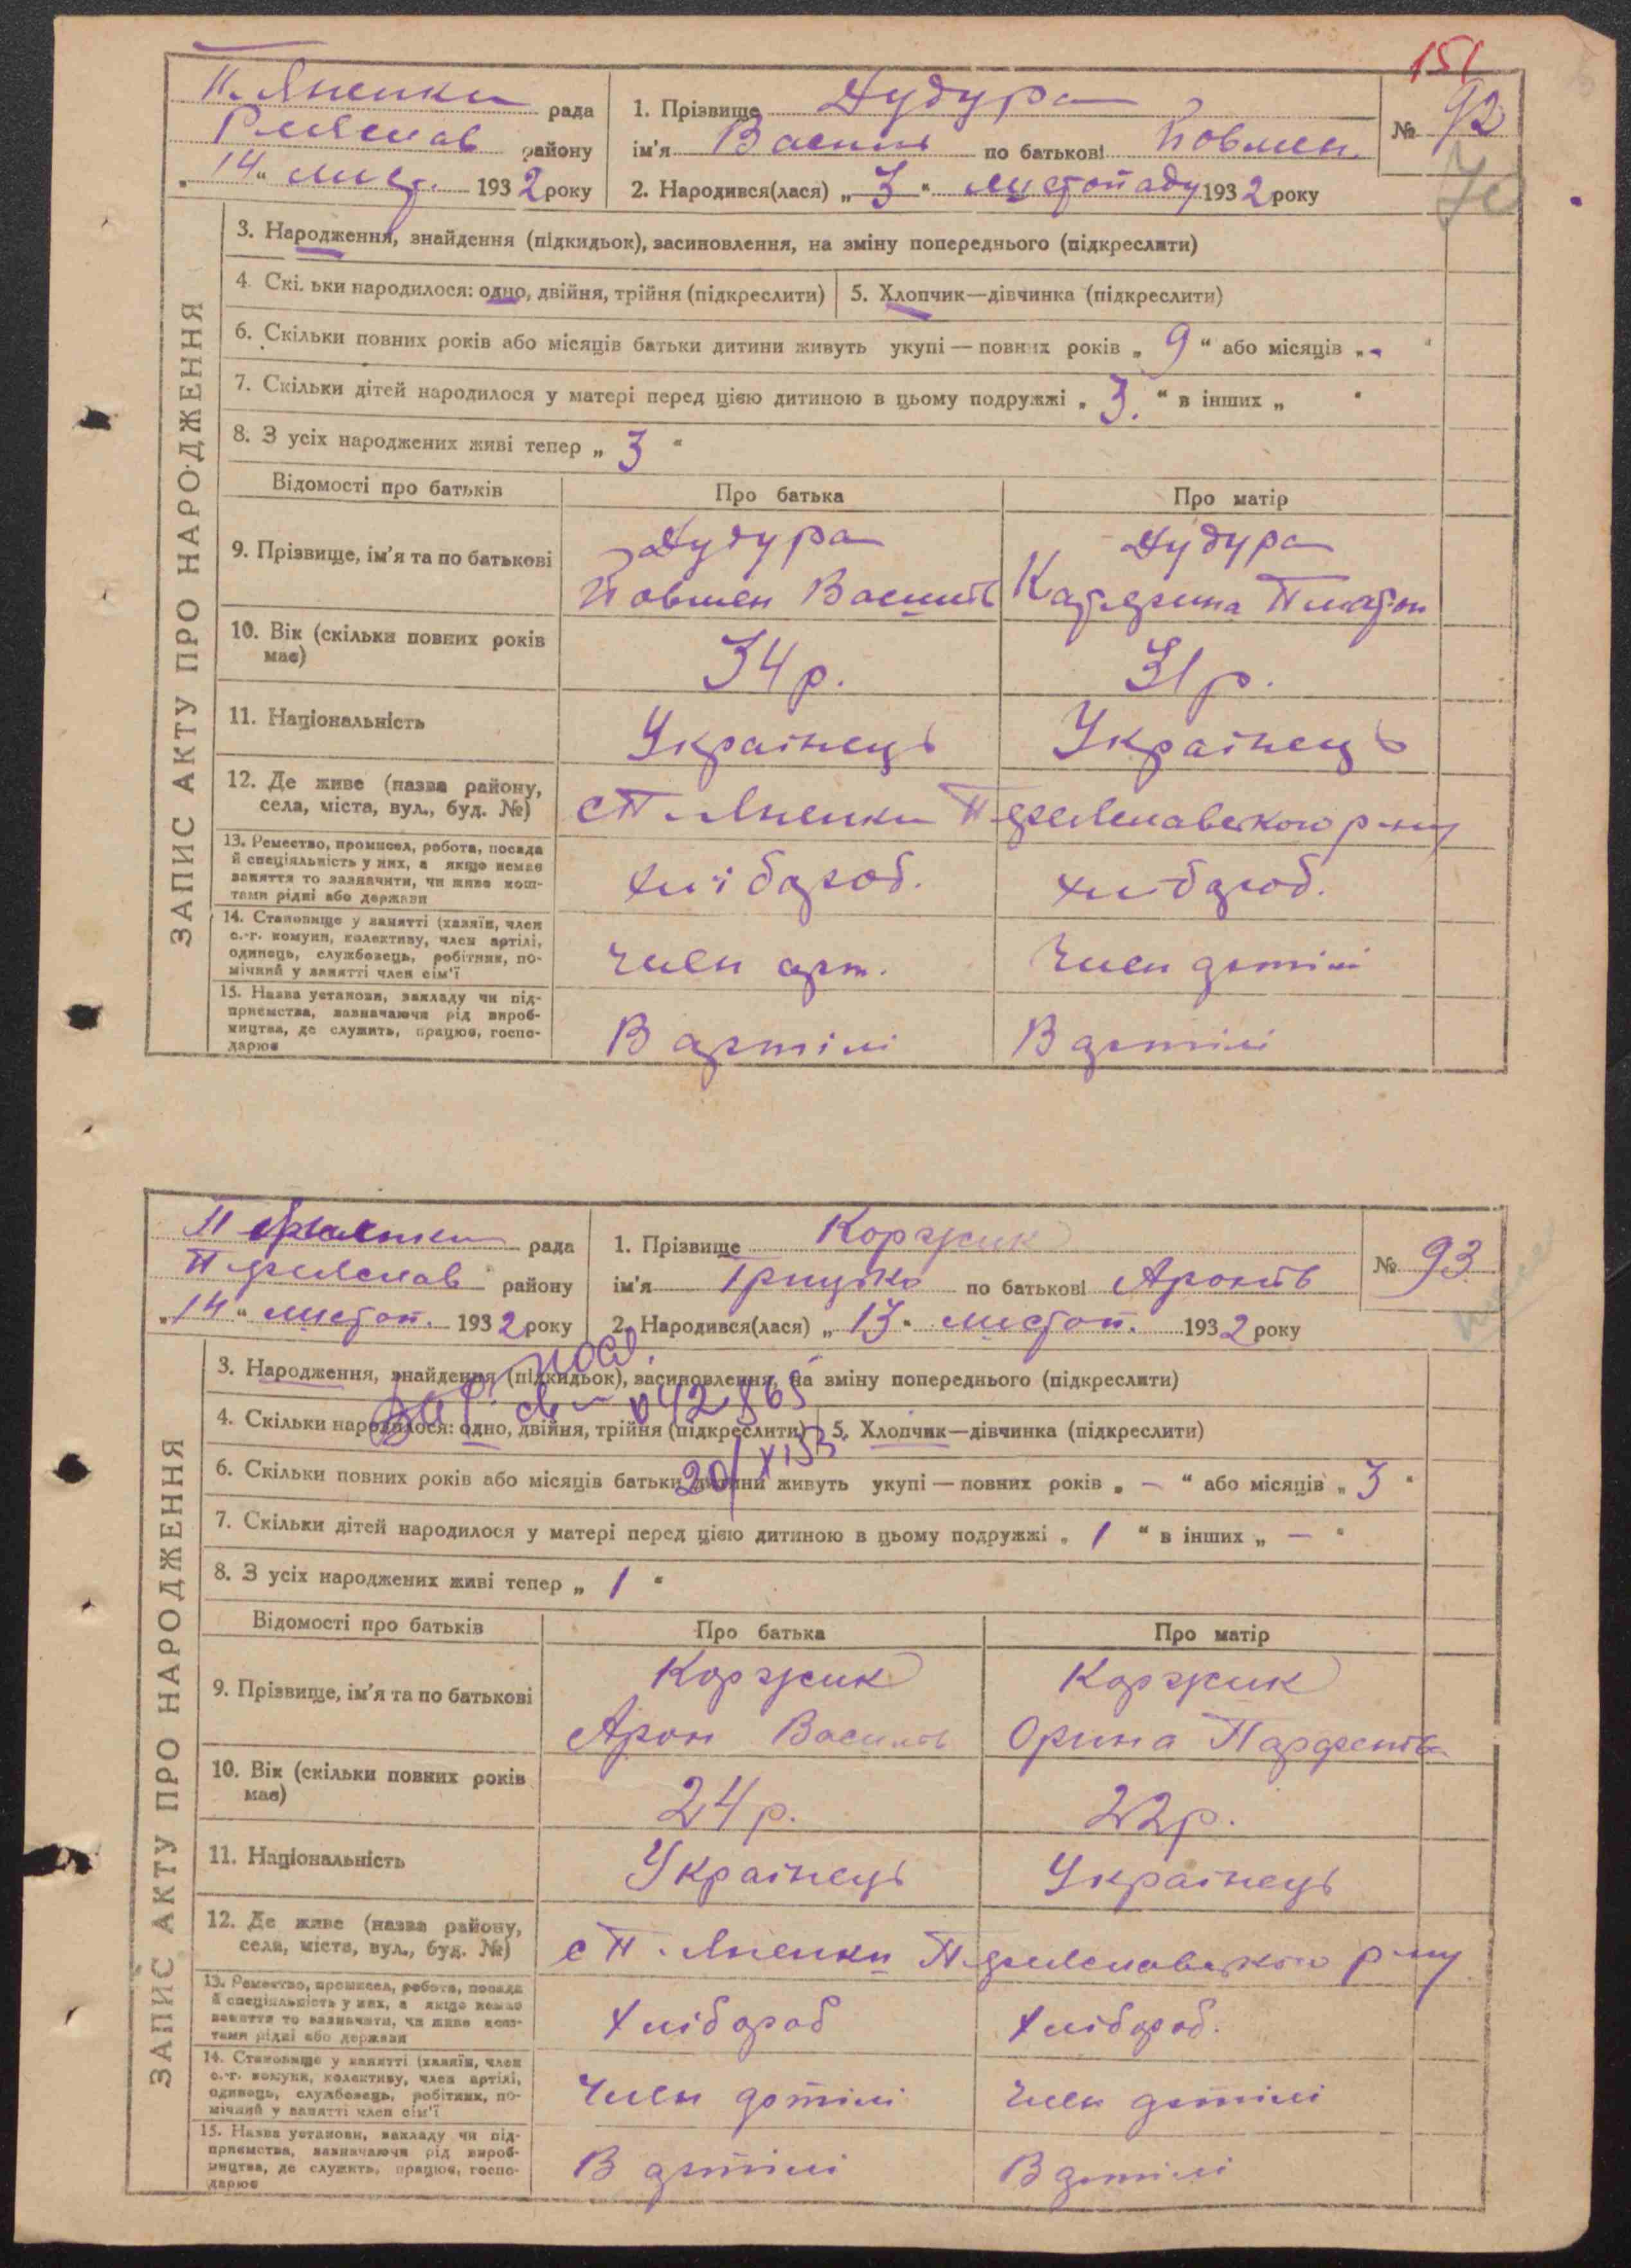 151
П. Яненки рада
району
„14“ лист. 1932 року
1. Прізвище Дудура
ім'я Василь по батькові Йовмен.
2. Народився(лася) „3“ листопаду 1932 року
№ 92
ЗАПИС АКТУ ПРО НАРОДЖЕННЯ
3. Народження, знайдення (підкидьок), засиновлення, на зміну попереднього (підкреслити)
4. Скі. ьки народилося: одно, двійня, трійня (підкреслити) 5. Хлопчик—дівчинка (підкреслити)
6. Скільки повних років або місяців батьки дитини живуть укупі — повних років „ 9 “ або місяців „ - “
7. Скільки дітей народилося у матері перед цією дитиною в цьому подружжі „ 3. “ в інших „ “
8. З усіх народжених живі тепер „ 3 “
Відомості про батьків Про батька Про матір
9. Прізвище, ім'я та по батькові
Дудура Дудура
Йовмен Василів Катерина Платон
10. Вік (скільки повних років має)
34 р. 31 р.
11. Національність
Українець Українець
12. Де живе (назва району, села, міста, вул., буд. №)
с П. Яненки Переяславського р-ну
13. Ремество, промисел, робота, посада й спеціяльність у них, а якщо немає заняття то зазначити, чи живе коштами рідні або держави
хлібороб. хлібороб.
14. Становище у занятті (хазяїн, член с.-г. комуни, колективу, член артілі, одинець, службовець, робітник, помічний у занятті член сім'ї
член арт. член артілі
15. Назва установи, закладу чи підприємства, зазначаючи рід виробництва, де служить, працює, господарює
В артілі В артілі
рада
Переяслав району
„14“ листоп. 1932 року
1. Прізвище Коржик
ім'я Грицько по батькові Аронів
2. Народився(лася) „13“ листоп. 1932 року
№ 93
ЗАПИС АКТУ ПРО НАРОДЖЕННЯ
3. Народження, знайдення (підкидьок), засиновлення, на зміну попереднього (підкреслити)
4. Скільки народилося: одно, двійня, трійня (підкреслити) 5. Хлопчик—дівчинка (підкреслити)
6. Скільки повних років або місяців батьки дитини живуть укупі — повних років „ – “ або місяців „ 3 “
7. Скільки дітей народилося у матері перед цією дитиною в цьому подружжі „ 1 “ в інших „ – “
8. З усіх народжених живі тепер „ 1 “
Відомості про батьків Про батька Про матір
9. Прізвище, ім'я та по батькові
Коржик Коржик
Арон Василів Орина Парфентів
10. Вік (скільки повних років має)
24 р. 22 р.
11. Національність
Українець Українець
12. Де живе (назва району, села, міста, вул., буд. №)
с П. Яненки Переяславського р-ну
13. Ремество, промисел, робота, посада й спеціяльність у них, а якщо немає заняття то зазначити, чи живе коштами рідні або держави
хлібороб хлібороб.
14. Становище у занятті (хазяїн, член с.-г. комуни, колективу, член артілі, одинець, службовець, робітник, помічний у занятті член сім'ї
член артілі член артілі
15. Назва установи, закладу чи підприємства, зазначаючи рід виробництва, де служить, працює, господарює
В артілі В артілі